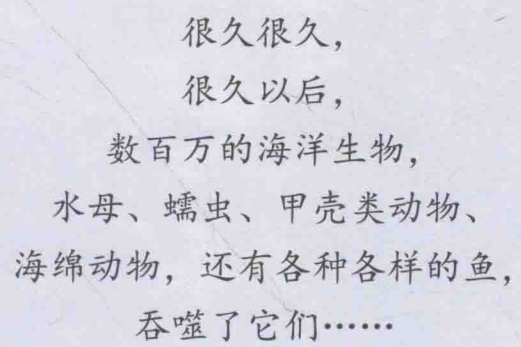 很久很久，
很久以后，
数百万的海洋生物，
水母、蠕虫、甲壳类动物、
海绵动物，还有各种各样的鱼，
吞噬了它们……